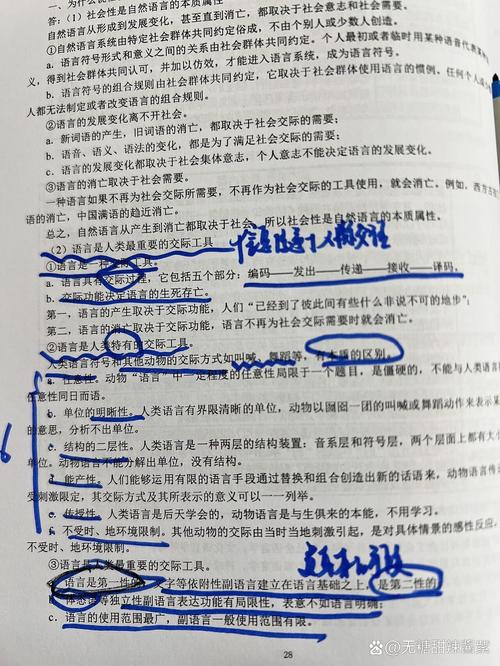 一、为什么说
答:(1)社会性是自然语言的本质属性
自然语言从形成到发展变化,甚至直到消亡,都取决于社会意志和社会需要。
①自然语言系统由特定社会群体共同约定俗成,不由个别人或少数人创造。
a. 语言符号形式和意义之间的关系由社会群体共同约定。个人最初或者临时用某种语音代表某种
义,得到社会群体共同认可,并加以仿效,才能进入语言系统,成为语言符号。
b. 语言符号的组合规则由社会群体共同约定,它取决于社会群体使用语言的惯例。任何个人或少
人都无法制定或者改变语言的组合规则。
②语言的发展变化离不开社会。
a. 新词语的产生,旧词语的消亡,都取决于社会交际的需要;
b. 语音、语义、语法的变化,都是为了满足社会交际的需要;
c. 语言的发展变化都取决于社会集体意志,个人意志不能决定语言的发展变化。
③语言的消亡取决于社会需要。
一种语言如果不再为社会交际所需要,不再作为社会交际的工具使用,就会消亡。例如,西方古
语的消亡,中国满语的趋近消亡。
总之,自然语言从产生到消亡都取决于社会,所以社会性是自然语言的本质属性。
(2)语言是人类最重要的交际工具
①语言是一种交际工具。
a. 语言具有交际过程,它包括五个部分:编码——发出——传递——接收——译码。
b. 交际功能决定语言的生死存亡。
第一,语言的产生取决于交际功能,人们“已经到了彼此间有些什么非说不可的地步”;
第二,语言的消亡取决于交际功能,语言不再为社会交际需要时就会消亡。
②语言是人类特有的交际工具。
人类语言符号和其他动物的交际方式如叫喊、舞蹈等,有本质的区别。
a. 任意性。动物“语言”中一定程度的任意性局限于一个题目,是僵硬的,不能与人类语言
任意性同日而语。
b. 单位的明晰性。人类语言有界限清晰的单位,动物以囫囵一团的叫喊或舞蹈动作来表示某
的意思,分析不出单位。
c. 结构的二层性。人类语言是一种两层的结构装置:音系层和符号层,两个层面上都有大小
单位。动物语言不能分解出单位,没有结构。
d. 能产性。人们能够运用有限的语言手段通过替换和组合创造出新的话语来,动物语言传
受刺激限定,其交际方式及其所表示的意义可以一一列举。
e. 传授性。人类语言是后天学会的,动物语言是与生俱来的本能,不用学习。
f. 不受时、地环境限制。其他动物的交际由当时当地刺激引起,是对具体情景的感性反应,
不受时、地环境限制。
③语言是人类最重要的交际工具。
a. 语言是第一性的,文字等依附性副语言建立在语言基础之上,是第二性的
b. 体态语等独立性副语言表达功能有局限性,表意不如语言明晰;
c. 语言的使用范围最广,副语言一般使用范围有限。
28
@无糖甜辣酱繁